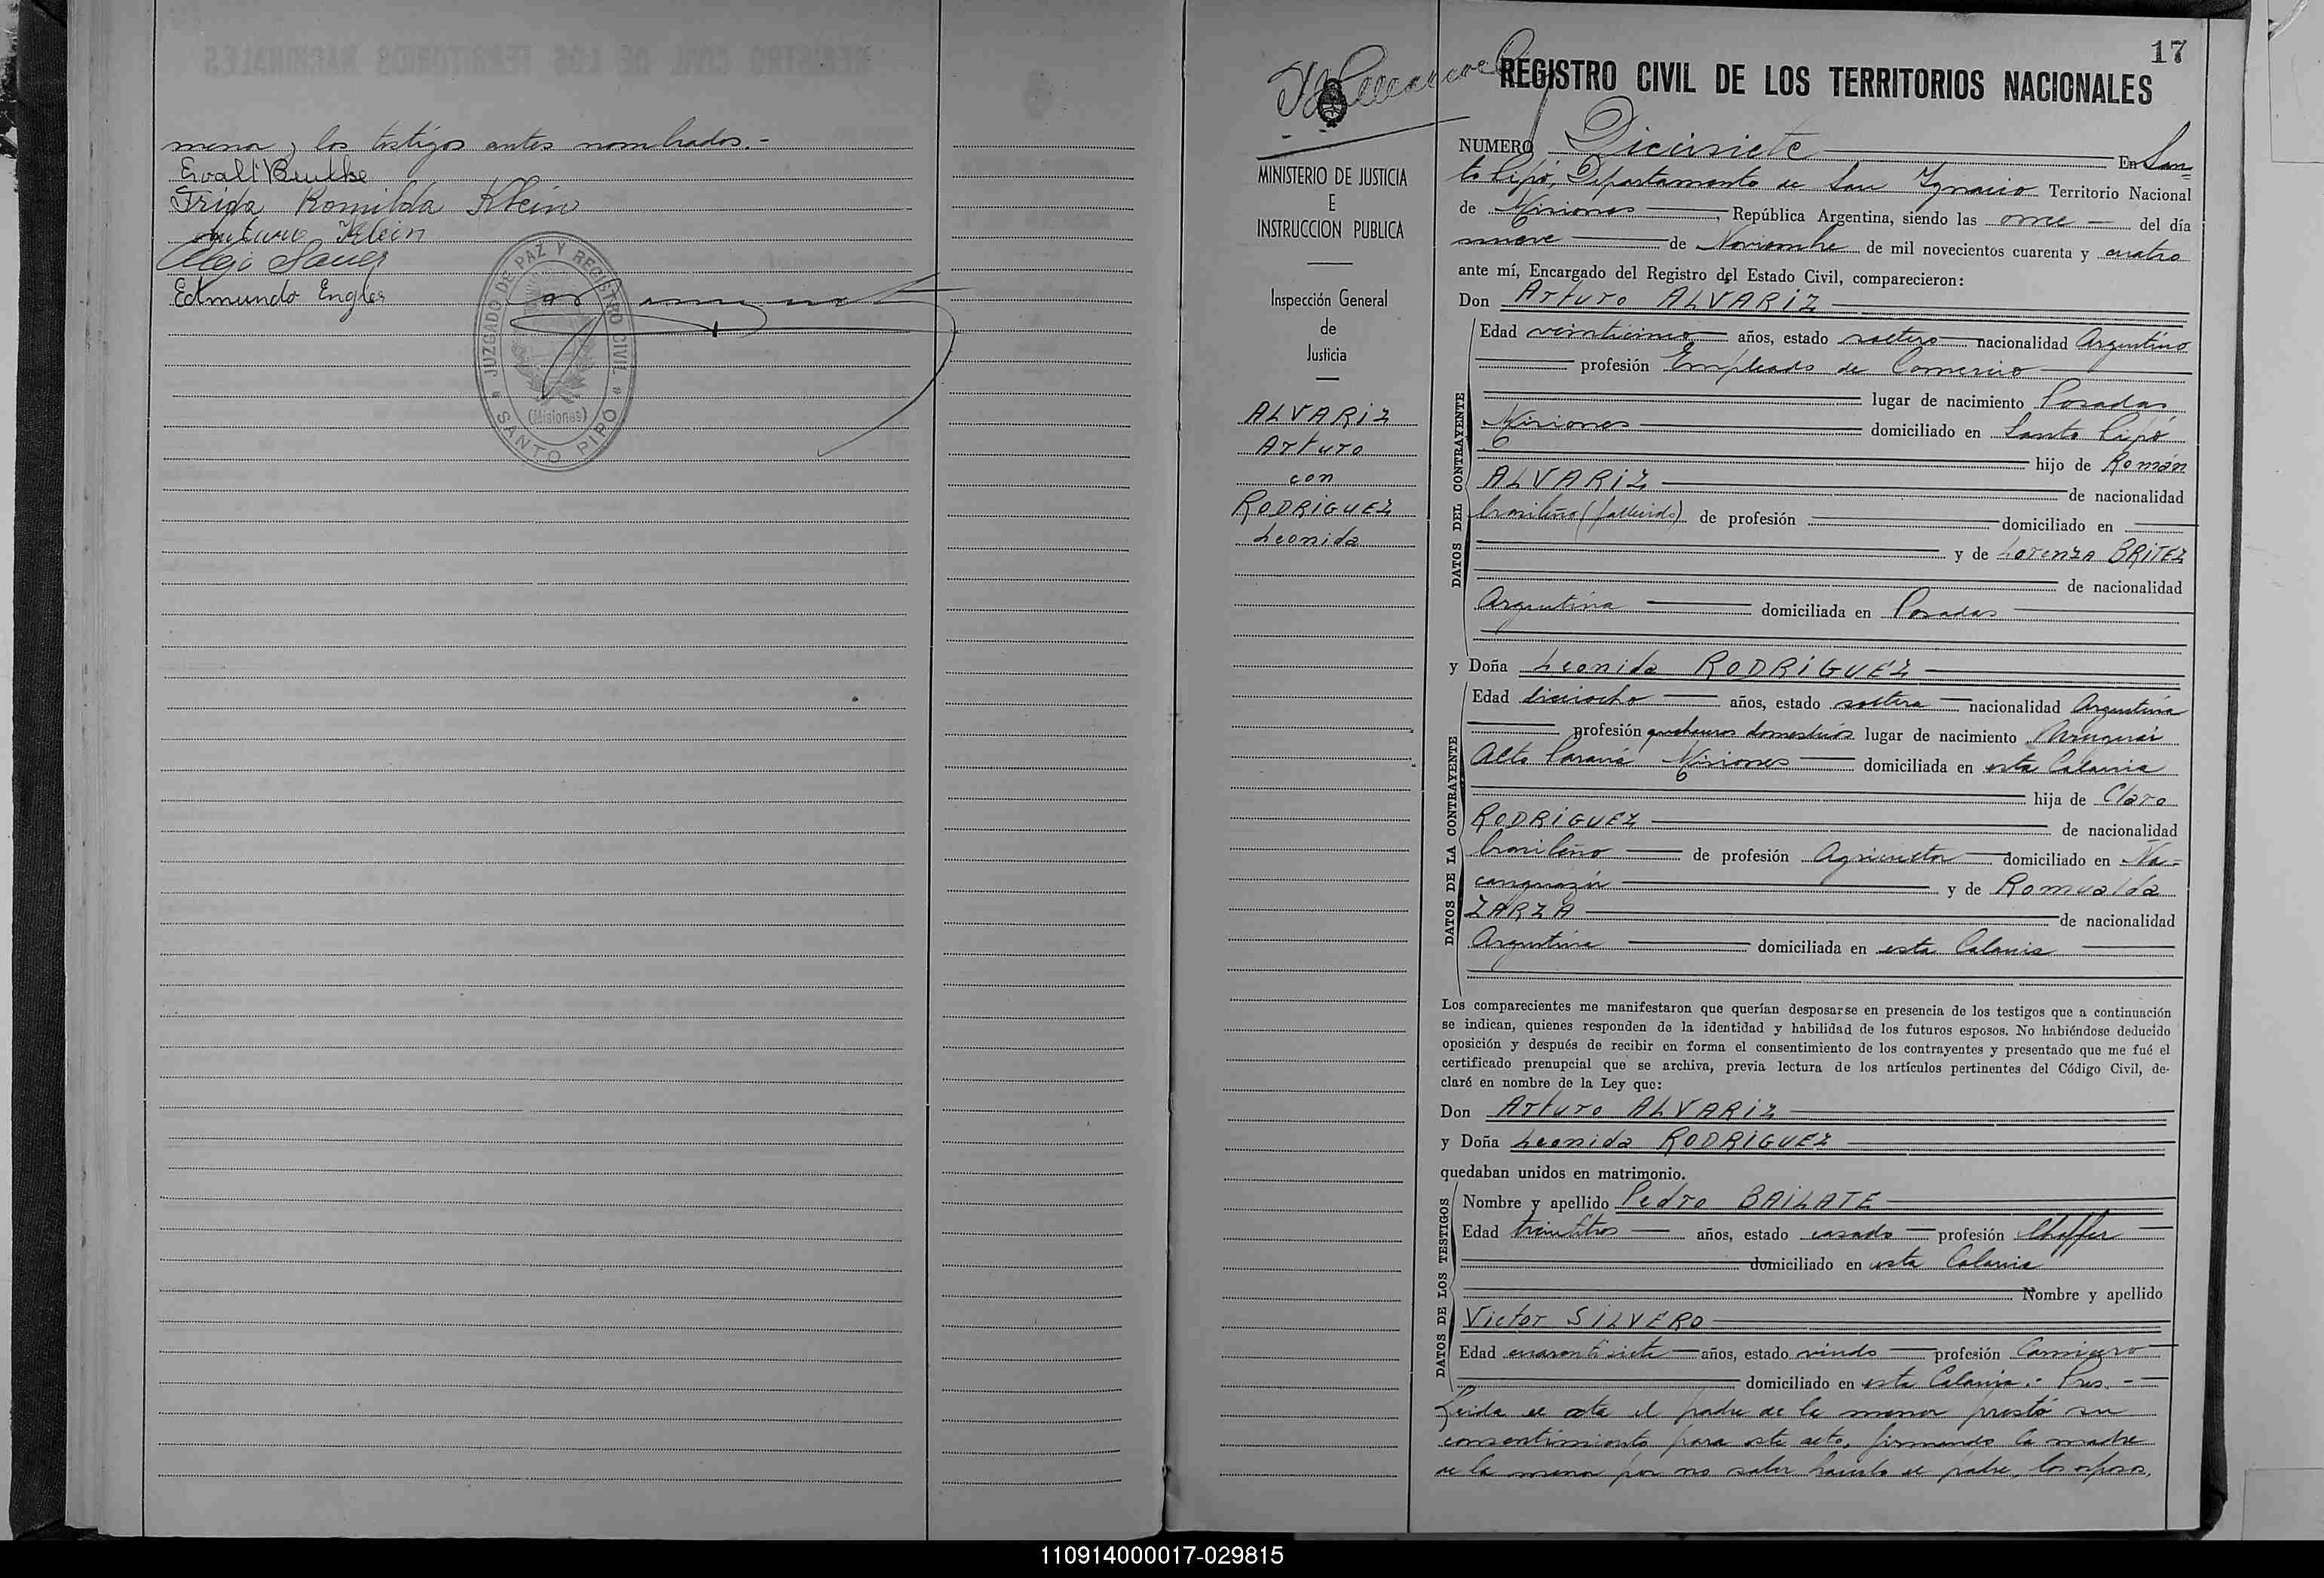 menor y los testigos antes nombrados.-
Evalt Beulke
Frida Romilda Klein
Arturo Klein
Alejo Sauer
Edmundo Engler
JUZGADO DE PAZ Y REGISTRO CIVIL
(Misiones)
SANTO PIPO
17
REGISTRO CIVIL DE LOS TERRITORIOS NACIONALES
MINISTERIO DE JUSTICIA
E
INSTRUCCION PUBLICA
Inspección General
de
Justicia
ALVARIZ
Arturo
con
RODRIGUEZ
Leonida
NUMERO Diecisiete En San=
to Pipó, Departamento de San Ignacio Territorio Nacional
de Misiones, República Argentina, siendo las once del día
nueve de Noviembre de mil novecientos cuarenta y cuatro
ante mí, Encargado del Registro del Estado Civil, comparecieron:
Don Arturo ALVARIZ
DATOS DEL CONTRAYENTE
Edad veinticinco años, estado soltero nacionalidad Argentino
profesión Empleado de Comercio
lugar de nacimiento Posadas
Misiones domiciliado en Santo Pipó
hijo de Román
ALVARIZ de nacionalidad
brasileño (fallecido) de profesión domiciliado en
y de Lorenza BRITEZ
de nacionalidad
Argentina domiciliada en Posadas
y Doña Leonida RODRIGUEZ
DATOS DE LA CONTRAYENTE
Edad dieciocho años, estado soltera nacionalidad Argentina
profesión quehaceres domesticos lugar de nacimiento
Alto Paraná Misiones domiciliada en esta Colonia
hija de Claro
RODRIGUEZ de nacionalidad
brasileño de profesión Agricultor domiciliado en Ña=
canguazú y de Romualda
ZARZA de nacionalidad
Argentina domiciliada en esta Colonia
Los comparecientes me manifestaron que querían desposarse en presencia de los testigos que a continuación
se indican, quienes responden de la identidad y habilidad de los futuros esposos. No habiéndose deducido
oposición y después de recibir en forma el consentimiento de los contrayentes y presentado que me fué el
certificado prenupcial que se archiva, previa lectura de los artículos pertinentes del Código Civil, de-
claré en nombre de la Ley que:
Don Arturo ALVARIZ
y Doña Leonida RODRIGUEZ
quedaban unidos en matrimonio.
DATOS DE LOS TESTIGOS
Nombre y apellido Pedro BAILATE
Edad treintitres años, estado casado profesión Chaffer
domiciliado en esta Colonia
Nombre y apellido
Victor SILVERO
Edad cuarentisiete años, estado viudo profesión Carnicero
domiciliado en esta Colonia.-
Leida el acta el padre de la menor prestó su
consentimiento para este acto, firmando la madre
de la menor por no saber hacerlo el padre, los esposos,
110914000017-029815